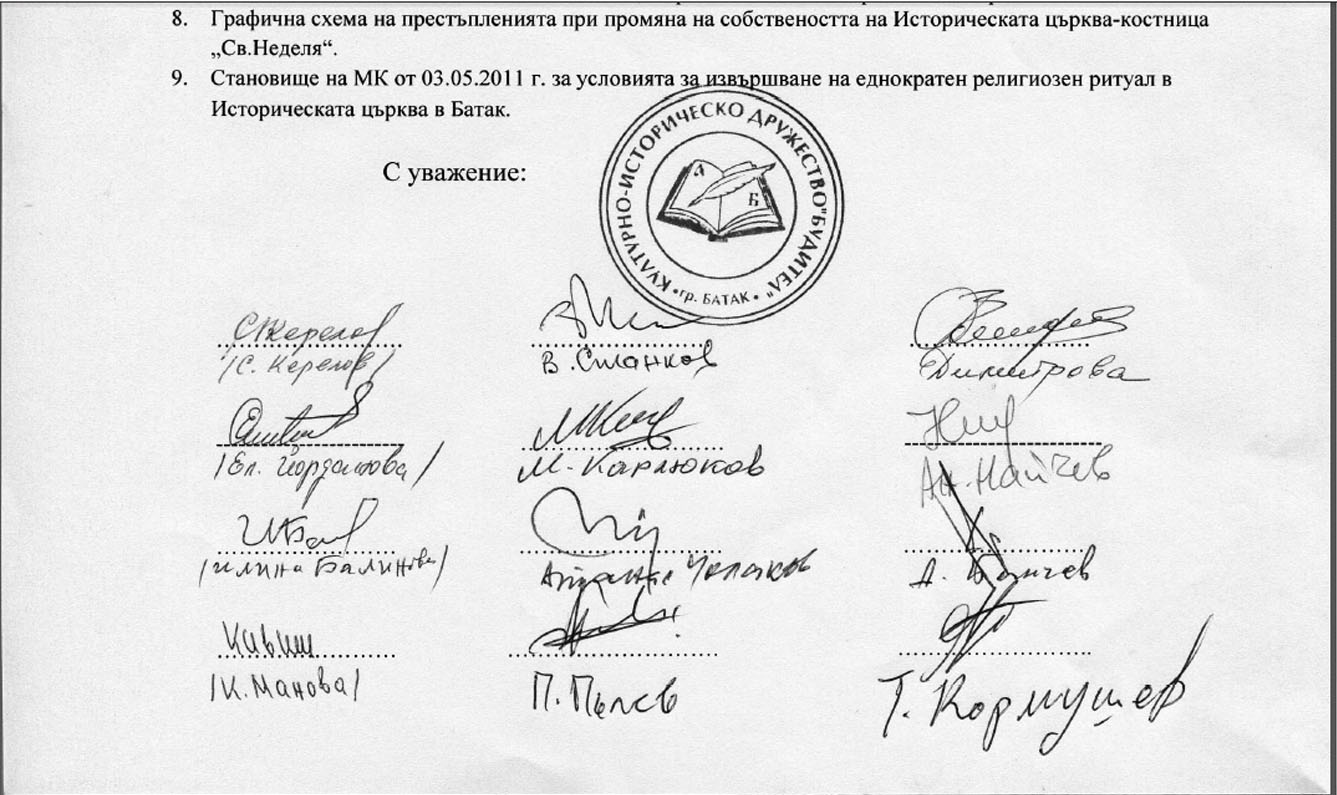 8. Графична схема на престъпленията при промяна на собствеността на Историческата църква-костница
„Св.Неделя“.
9. Становище на МК от 03.05.2011 г. за условията за извършване на еднократен религиозен ритуал в
Историческата църква в Батак.
С уважение:
КУЛТУРНО-ИСТОРИЧЕСКО ДРУЖЕСТВО "БУДИТЕЛ"
А Б
• гр. БАТАК •
/С. Керелов/ В. Станков Димитрова
/Ел. Йорданова/ М. Карлюков Ан. Найчев
/Илина Балинова/ Атанас Чолаков А.
/К. Манова/ П. Пълев Т. Кормушев